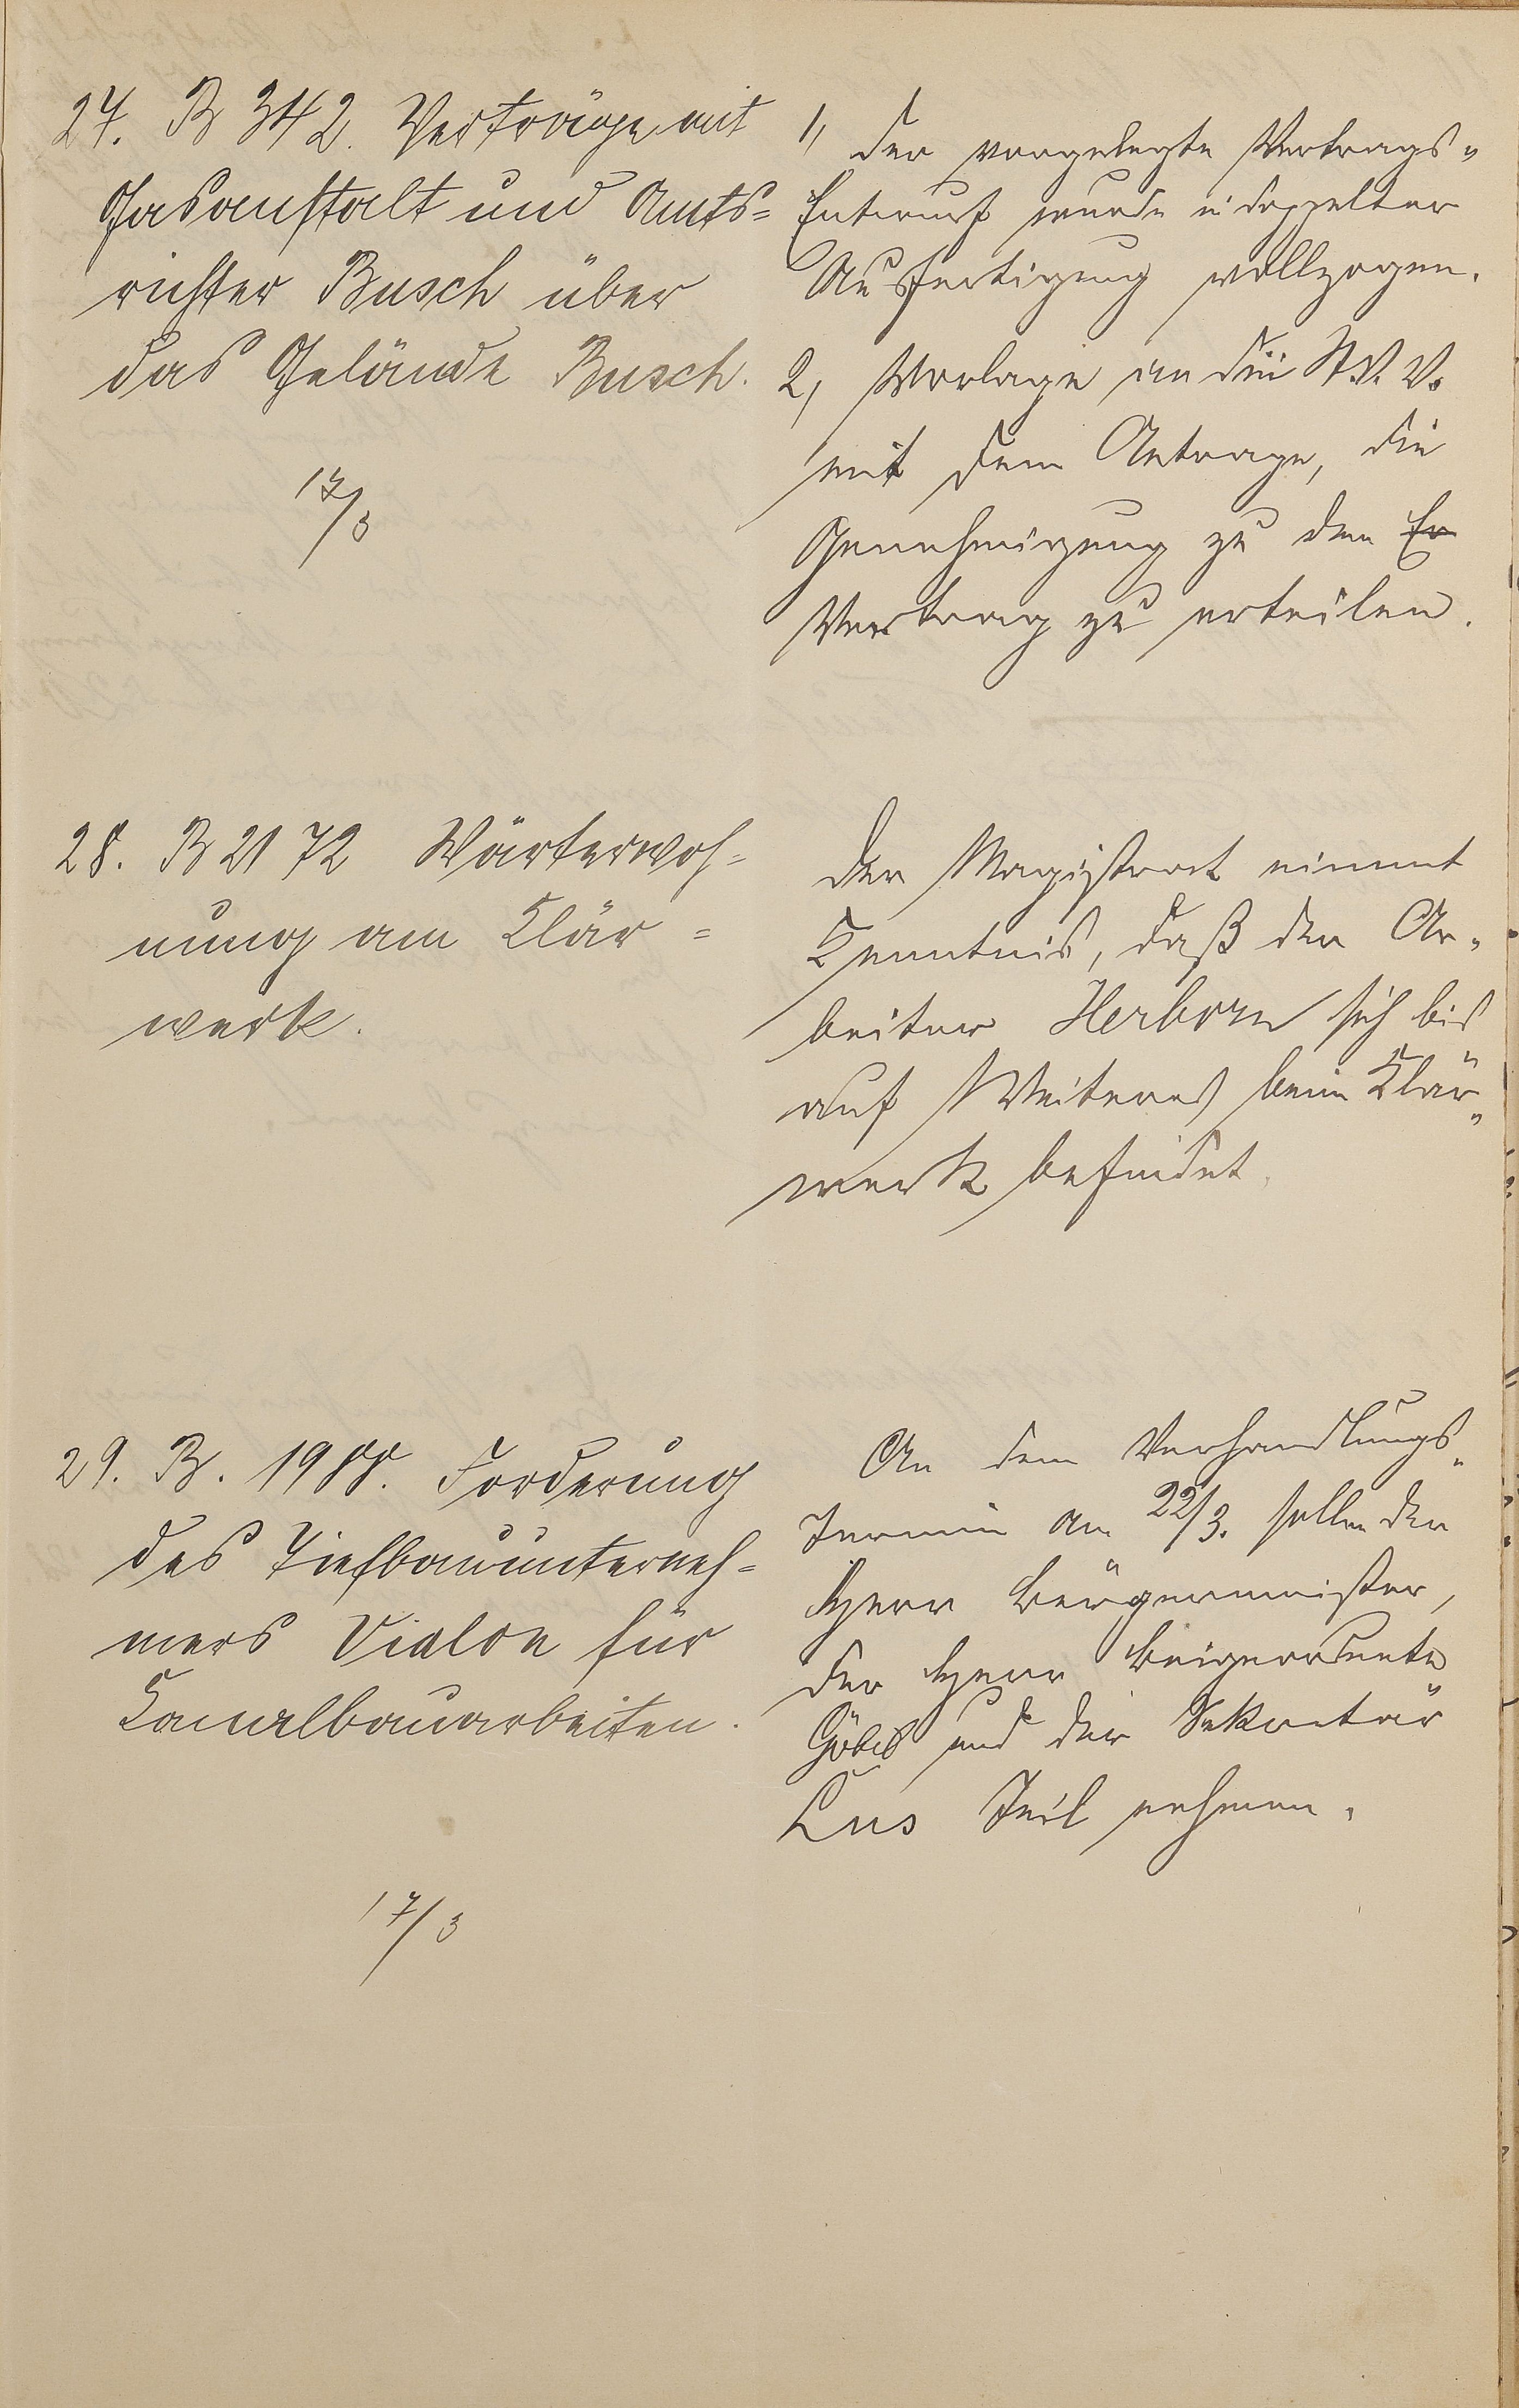 27. B 342. Verträge mit
Gasanstalt und Amts=
richter Busch über
das Gelände Busch.
17/3
1, Der vorgelegte Vertrags-
Entwurf wurde in doppelter
Ausfertigung vollzogen.
2, Vorlage an die St. V. V.
mit dem Antrage, die
Genehmigung zu dem Er
Vertrag zu erteilen.
28. B 2172 Wärterwoh=
nung am Klär=
werk.
Der Magistrat nimmt
Kenntnis, daß der Ar-
beiter Herborn sich bis
auf Weiteres beim Klär-
werk befindet.
29. B. 1988. Forderung
des Tiefbauunterneh=
mers Vialon für
Kanalbauarbeiten.
17/3
An dem Verhandlungs-
Termin am 22/3. sollen der
Herr Bürgermeister,
der Herr Beigeordnete
Göbel und der Sekretär
Lus Teil nehmen.